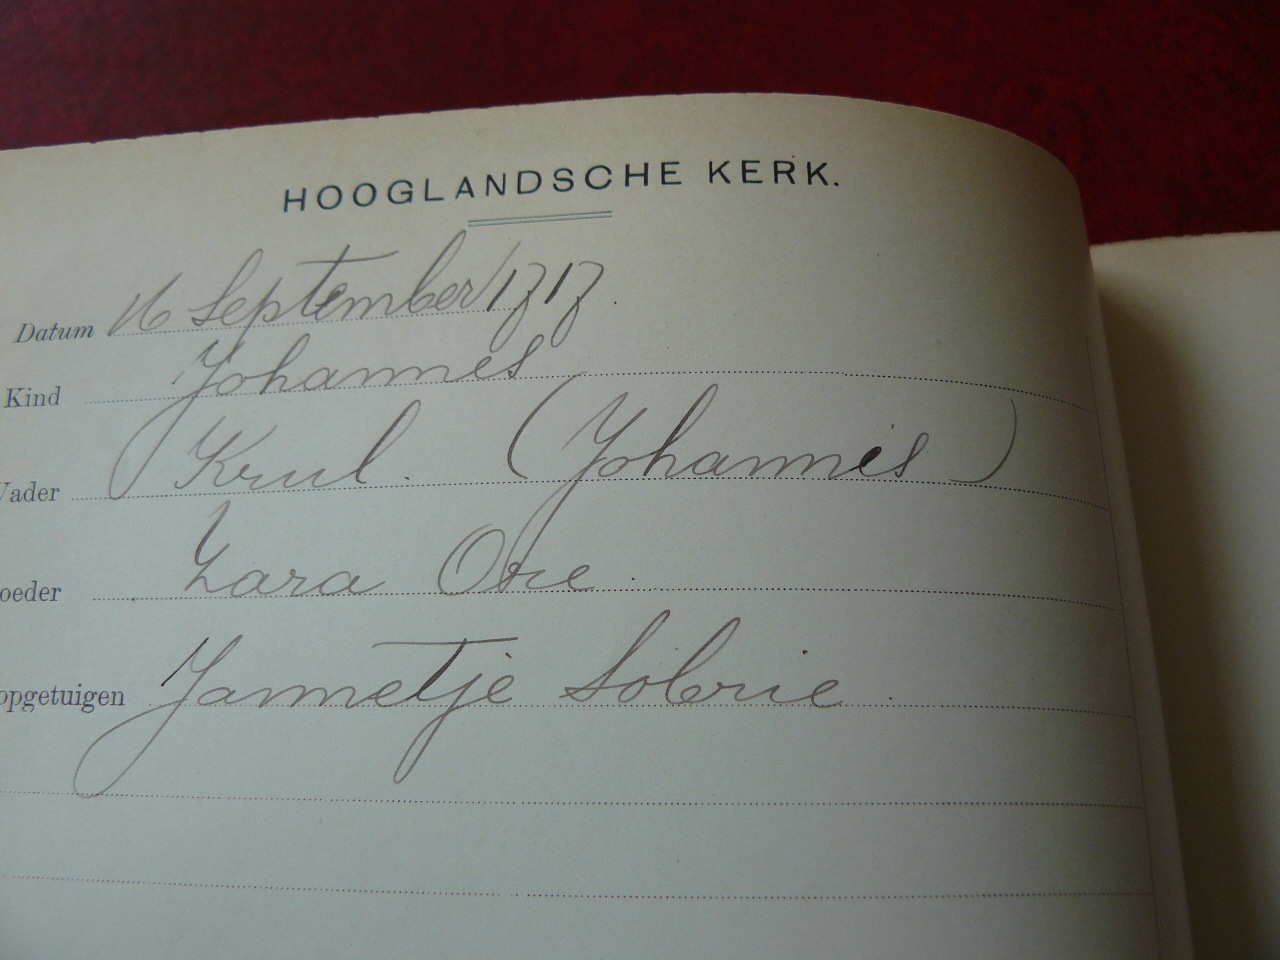 HOOGLANDSCHE KERK.
Datum 16 September 1717.
Kind Johannes
Vader Krul. (Johannes)
oeder Zara
opgetuigen Jannetje Sobrie.